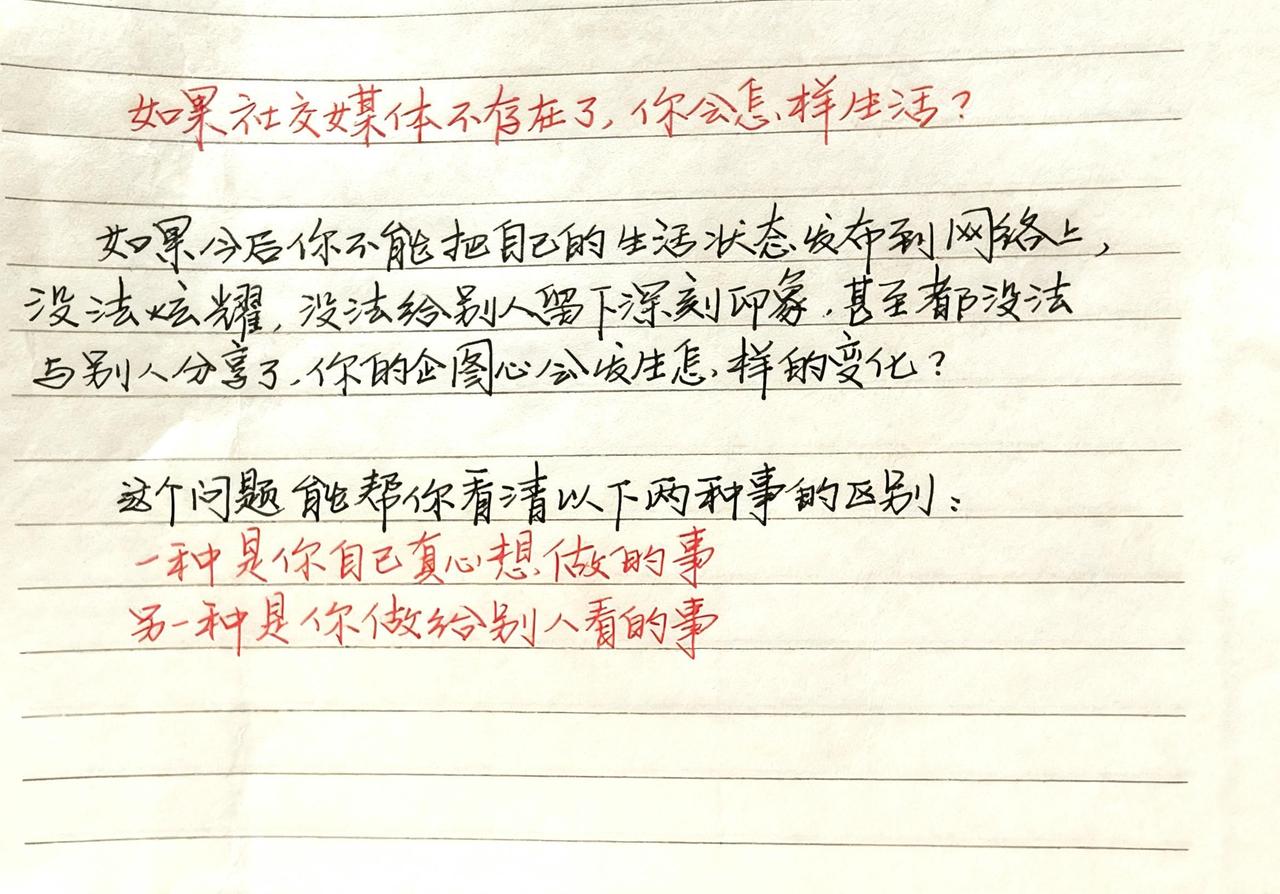 如果社交媒体不存在了,你会怎样生活?
如果今后你不能把自己的生活状态发布到网络上,
没法炫耀,没法给别人留下深刻印象,甚至都没法
与别人分享了,你的企图心会发生怎样的变化?
这个问题能帮你看清以下两种事的区别:
一种是你自己真心想做的事
另一种是你做给别人看的事